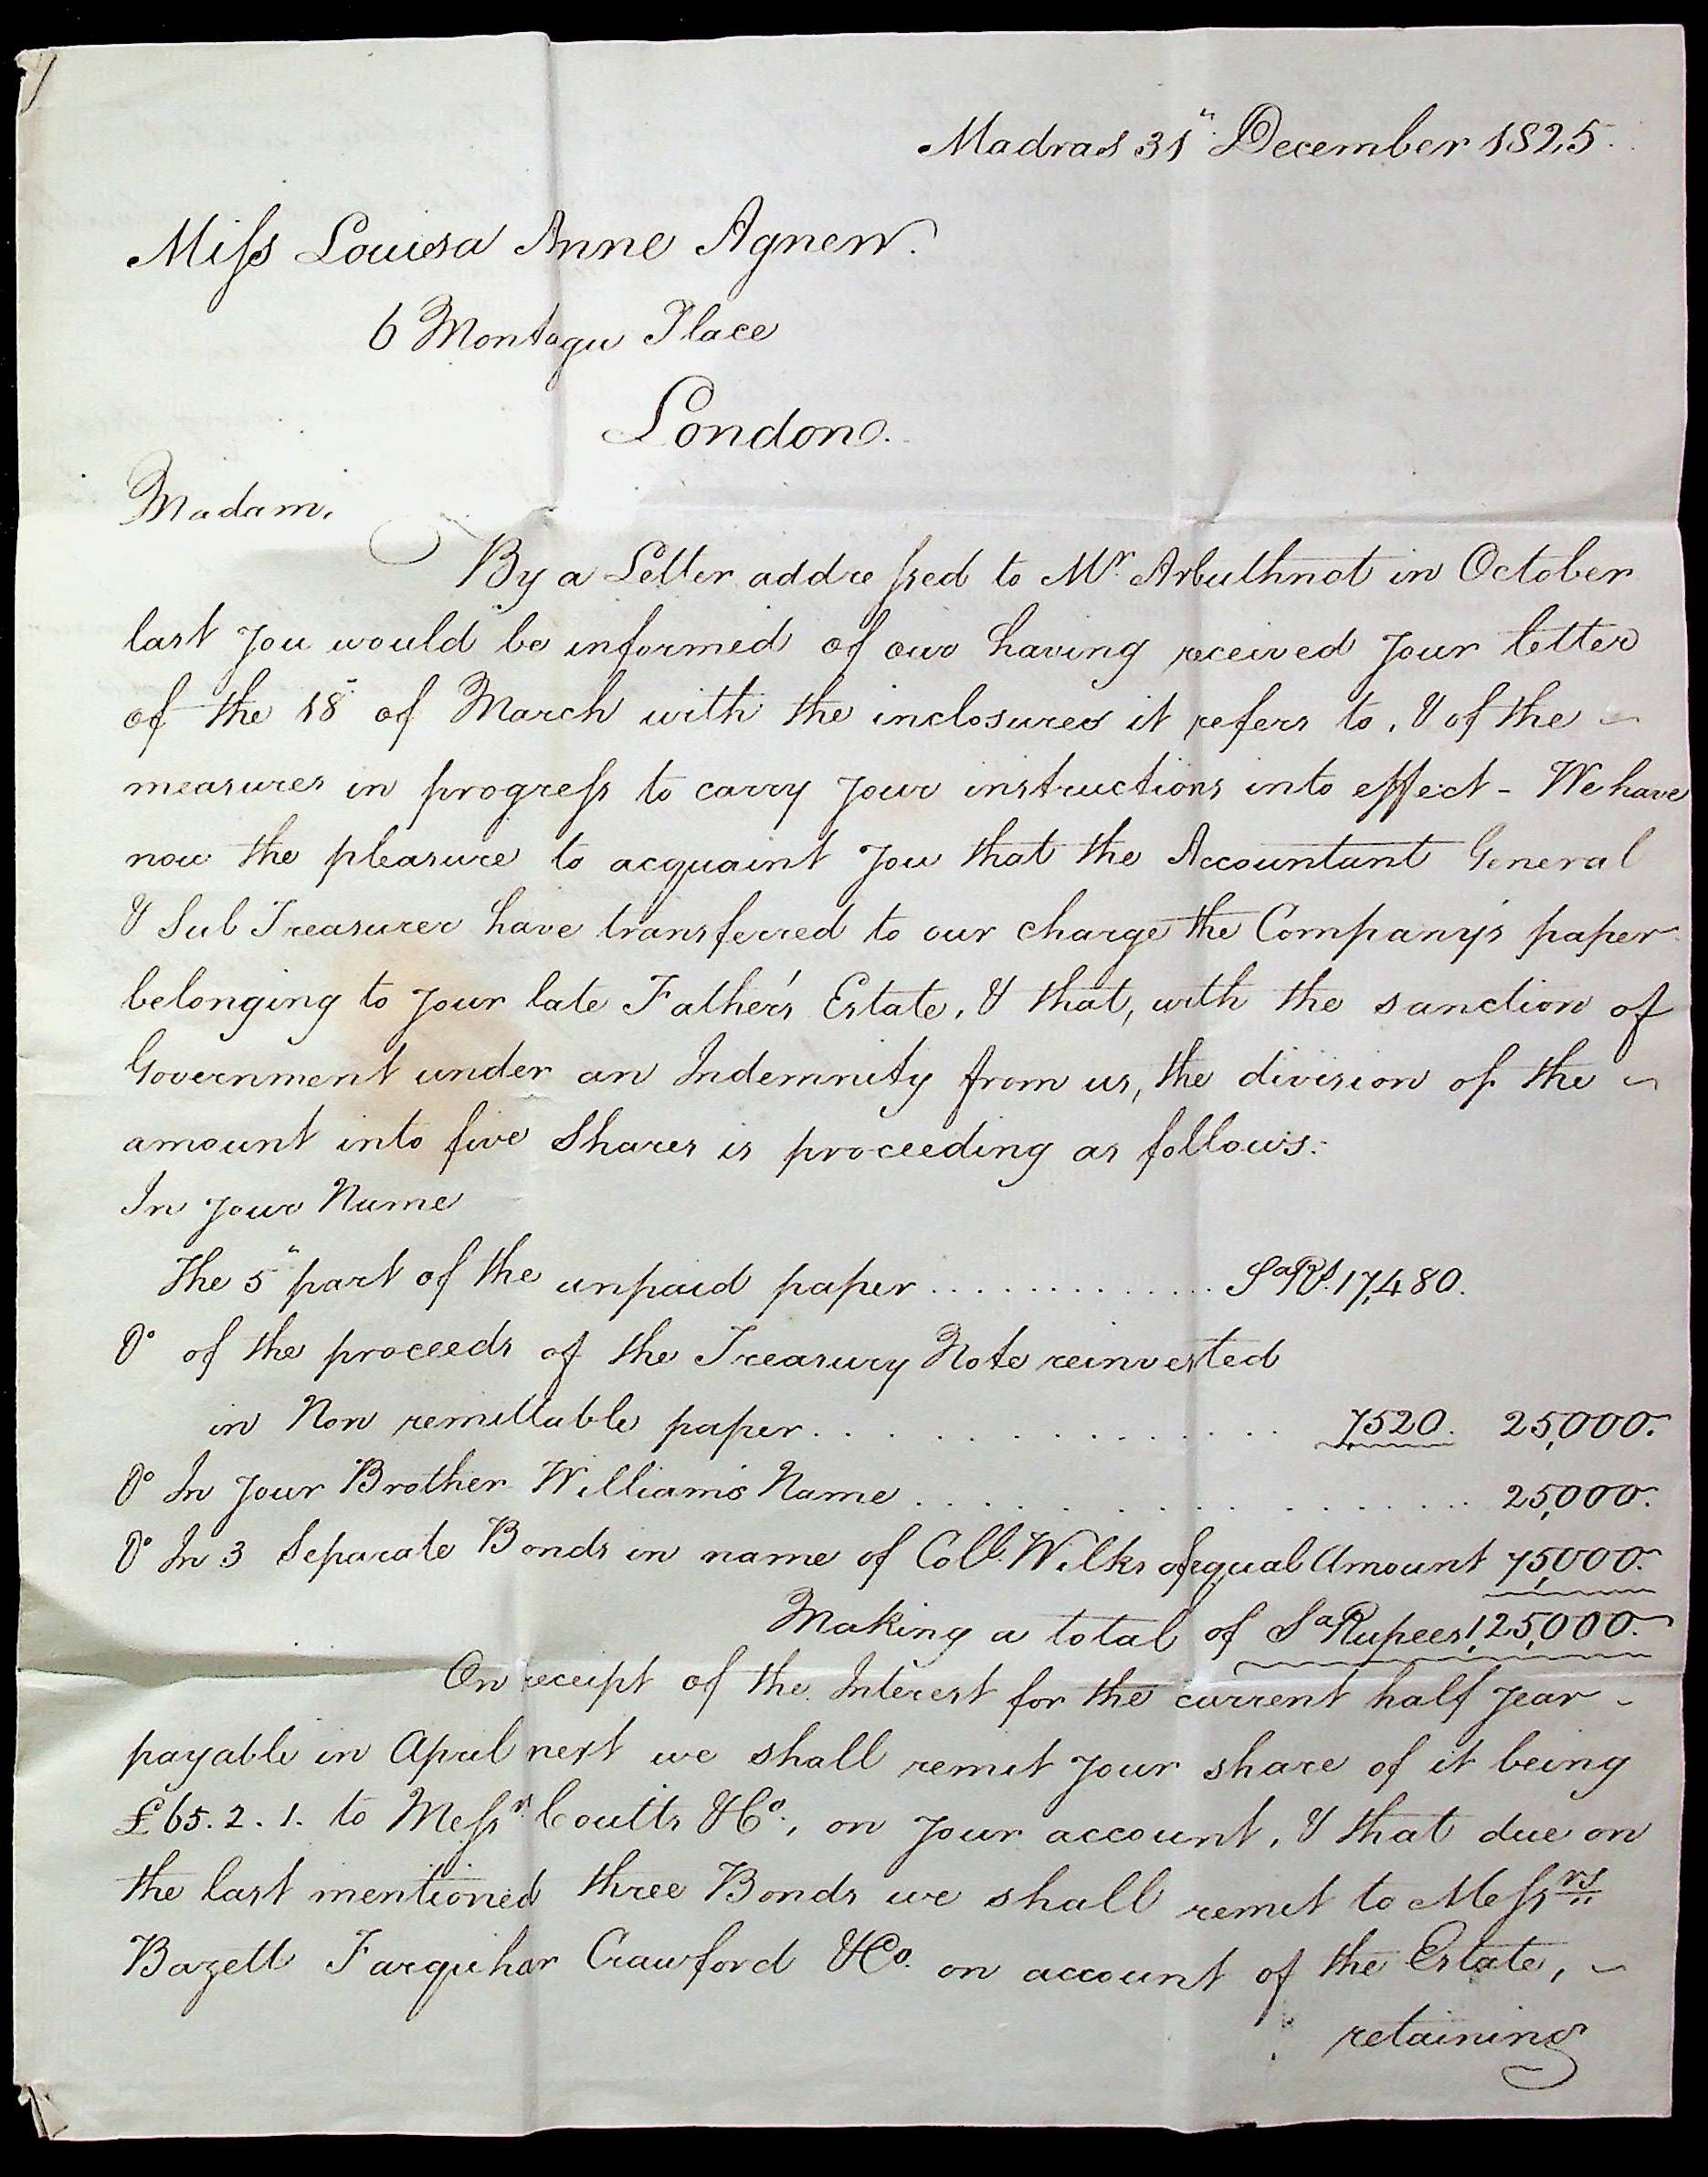 Madras 31" December 1825.
Miss Louisa Anne Agnew.
6 Montagu Place
London.
Madam,
By a Letter addressed to Mr. Arbuthnot in October
last you would be informed of our having received your letter
of the 18" of March with the inclosures it refers to, & of the
measures in progress to carry your instructions into effect - We have
now the pleasure to acquaint you that the Accountant General
& Sub Treasurer have transferred to our charge the Company's paper
belonging to your late Father's Estate, & that, with the sanction of
Government under an Indemnity from us, the division of the
amount into five Shares is proceeding as follows:
In your Name
The 5" part of the unpaid paper ............. Sa Rs. 17,480.
Do of the proceeds of the Treasury Note reinvested
in Non remittable paper. . . . . . . . . . . . . 7,520. 25,000.
Do In your Brother William's Name . . . . . . . . . . . . . . . 25,000.
Do In 3 Separate Bonds in name of Coll. Wilks of equal Amount 75,000.
Making a total of Sa Rupees 1,25,000.
On receipt of the Interest for the current half year
payable in April next we shall remit your share of it being
£65.2.1. to Messrs. Coutts & Co., on your account, & that due on
the last mentioned three Bonds we shall remit to Messrs
Bazett Farquhar Crawford & Co. on account of the Estate,
retaining